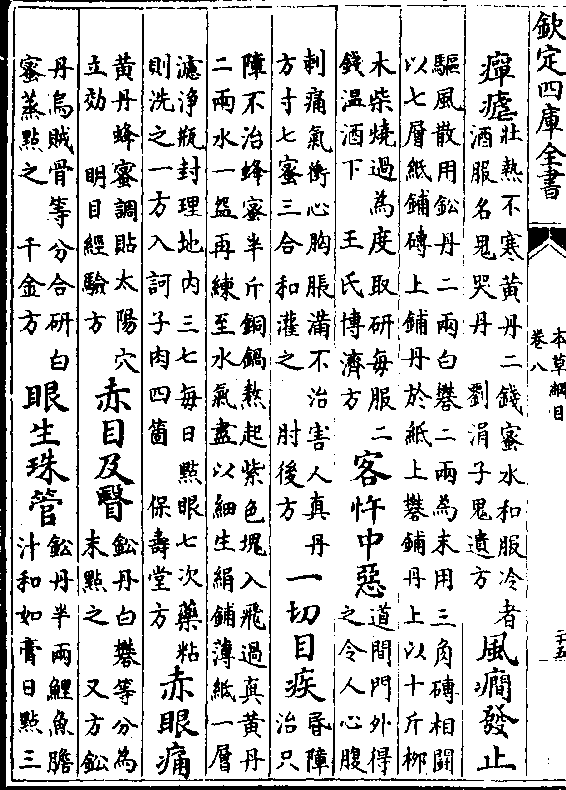 欽定四庫全書
本草綱目
卷八
二十五
癉瘧
壯熱不寒黃丹二錢蜜水和服冷者
酒服名鬼哭丹 劉涓子鬼遺方
風癇發止
驅風散用鈆丹二兩白礬二兩為末用三角磚相鬭
以七層紙鋪磚上鋪丹於紙上礬鋪丹上以十斤栁
木柴燒過為度取研每服二
錢温酒下 王氏博濟方
客忤中惡
道間門外得
之令人心腹
刺痛氣衝心胸脹滿不治害人真丹
方寸七蜜三合和灌之 肘後方
一切目疾
昏障
治只
障不治蜂蜜半斤銅鍋熬起紫色塊入飛過真黃丹
二兩水一盌再練至水氣盡以細生絹鋪薄紙一層
濾淨瓶封理地內三七每日點眼七次藥粘
則洗之一方入訶子肉四箇 保壽堂方
赤眼痛
黃丹蜂蜜調貼太陽穴
立効 明目經驗方
赤目及翳
鈆丹白礬等分為
末點之 又方鈆
丹烏賊骨等分合研白
蜜蒸點之 千金方
眼生珠管
鈆丹半兩鯉魚膽
汁和如膏日點三